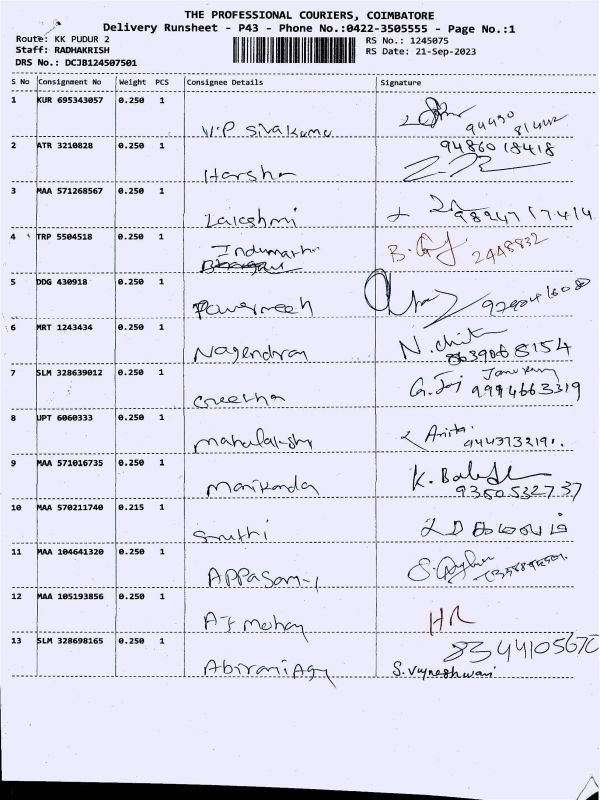 THE PROFESSIONAL COURIERS, COIMBATORE
Delivery Runsheet - P43 - Phone No.:0422-3505555 - Page No.:1
Route: KK PUDUR 2 RS No.: 1245075
Staff: RADHAKRISH RS Date: 21-Sep-2023
DRS No.: DCJB124507501
S No Consignment No Weight PCS Consignee Details Signature
1 KUR 695343057 0.250 1
V.P Sivakumar
2 ATR 3210828 0.250 1 9486018418
Harsha
3 MAA 571268567 0.250 1
Lakshmi 9894717414
4 TRP 5504518 0.250 1 Indumathi B. 2448832
5 DDG 430918 0.250 1
6 MRT 1243434 0.250 1
Nagendran N. 8639068154
7 SLM 328639012 0.250 1
Geetha 9994663319
8 UPT 6060333 0.250 1
Mahalakshmi Anita 9443732191.
9 MAA 571016735 0.250 1
Manikanda K. 9360532737
10 MAA 570211740 0.215 1
Sruthi
11 MAA 104641320 0.250 1
APPASamy
12 MAA 105193856 0.250 1
Mohan HR
13 SLM 328698165 0.250 1 8344105670
Abirami Agy S. Vigneshwari